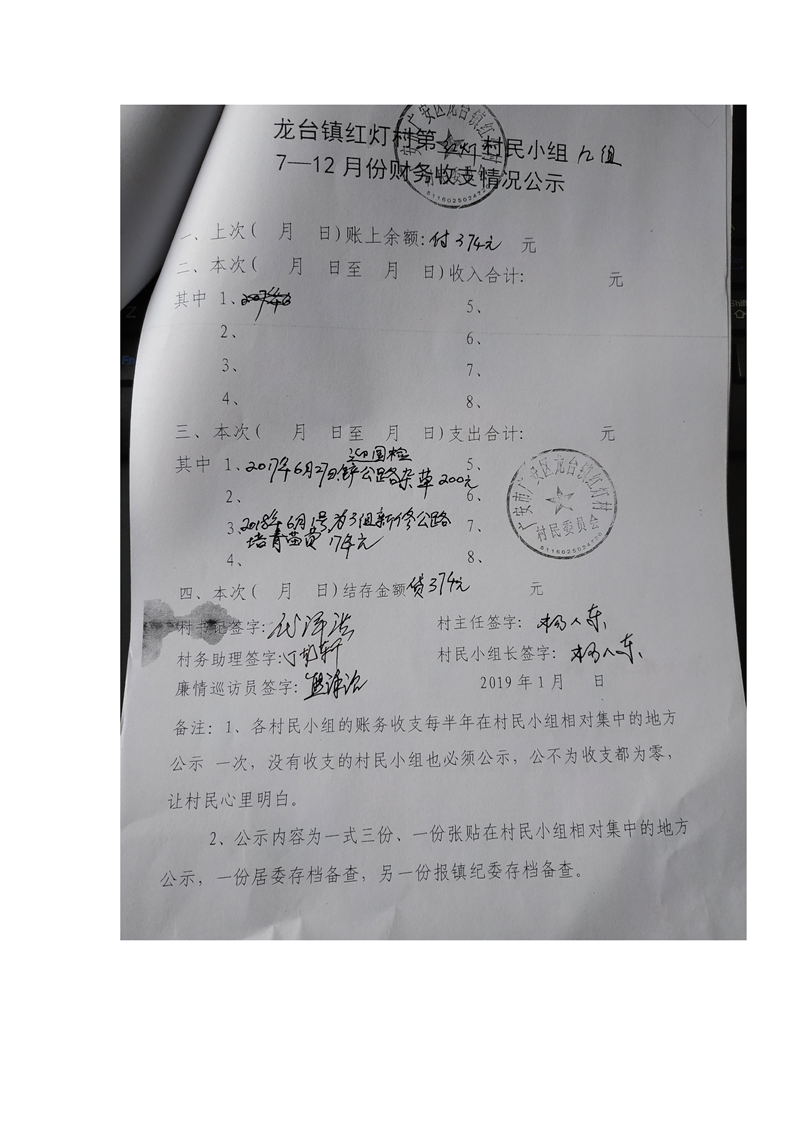 龙台镇红灯村第红灯村民小组 九组
7—12月份财务收支情况公示
一、上次( 月 日)账上余额:付374元 元
二、本次( 月 日至 月 日)收入合计: 元
其中 1、 5、
2、 6、
3、 7、
4、 8、
三、本次( 月 日至 月 日)支出合计: 元
迎国检
其中 1、2017年6月27日铲公路杂草200元 5、
2、 6、
3、2018年6月1号为3组新修公路 7、
培青苗费174元
4、 8、
广安市广安区龙台镇红灯村
村民委员会
四、本次( 月 日)结存金额贷374元 元
村书记签字: 村主任签字:
村务助理签字: 村民小组长签字:
廉情巡访员签字: 2019年1月 日
备注:1、各村民小组的账务收支每半年在村民小组相对集中的地方
公示 一次,没有收支的村民小组也必须公示,公不为收支都为零,
让村民心里明白。
2、公示内容为一式三份、一份张贴在村民小组相对集中的地方
公示,一份居委存档备查,另一份报镇纪委存档备查。